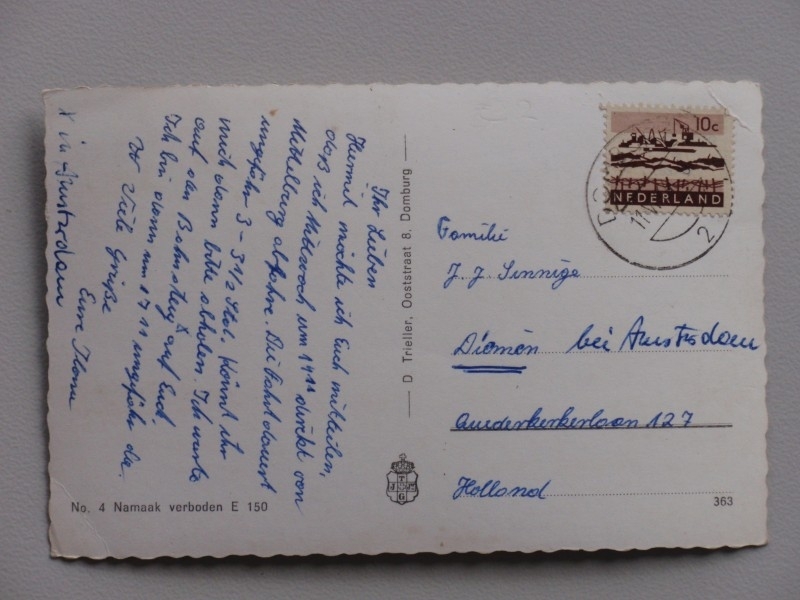 Ihr Lieben
Hiermit möchte ich Euch mitteilen,
daß ich Mittwoch um 14 direkt von
Middelburg abfahre. Die Fahrt dauert
ungefähr 3 - 3 1/2 Std. Könnt ihr
mich dann bitte abholen. Ich warte
auf dem Bahnsteig x auf Euch
Ich bin dann um 17 ungefähr da.
Viele Grüße
Eure
x in Amsterdam
No. 4 Namaak verboden E 150
D Trieller, Ooststraat 8, Domburg
10c
NEDERLAND
2
Familie
J. J. Sinnige
Diemen bei Amsterdam
Ouderkerkerlaan 127
Holland
363